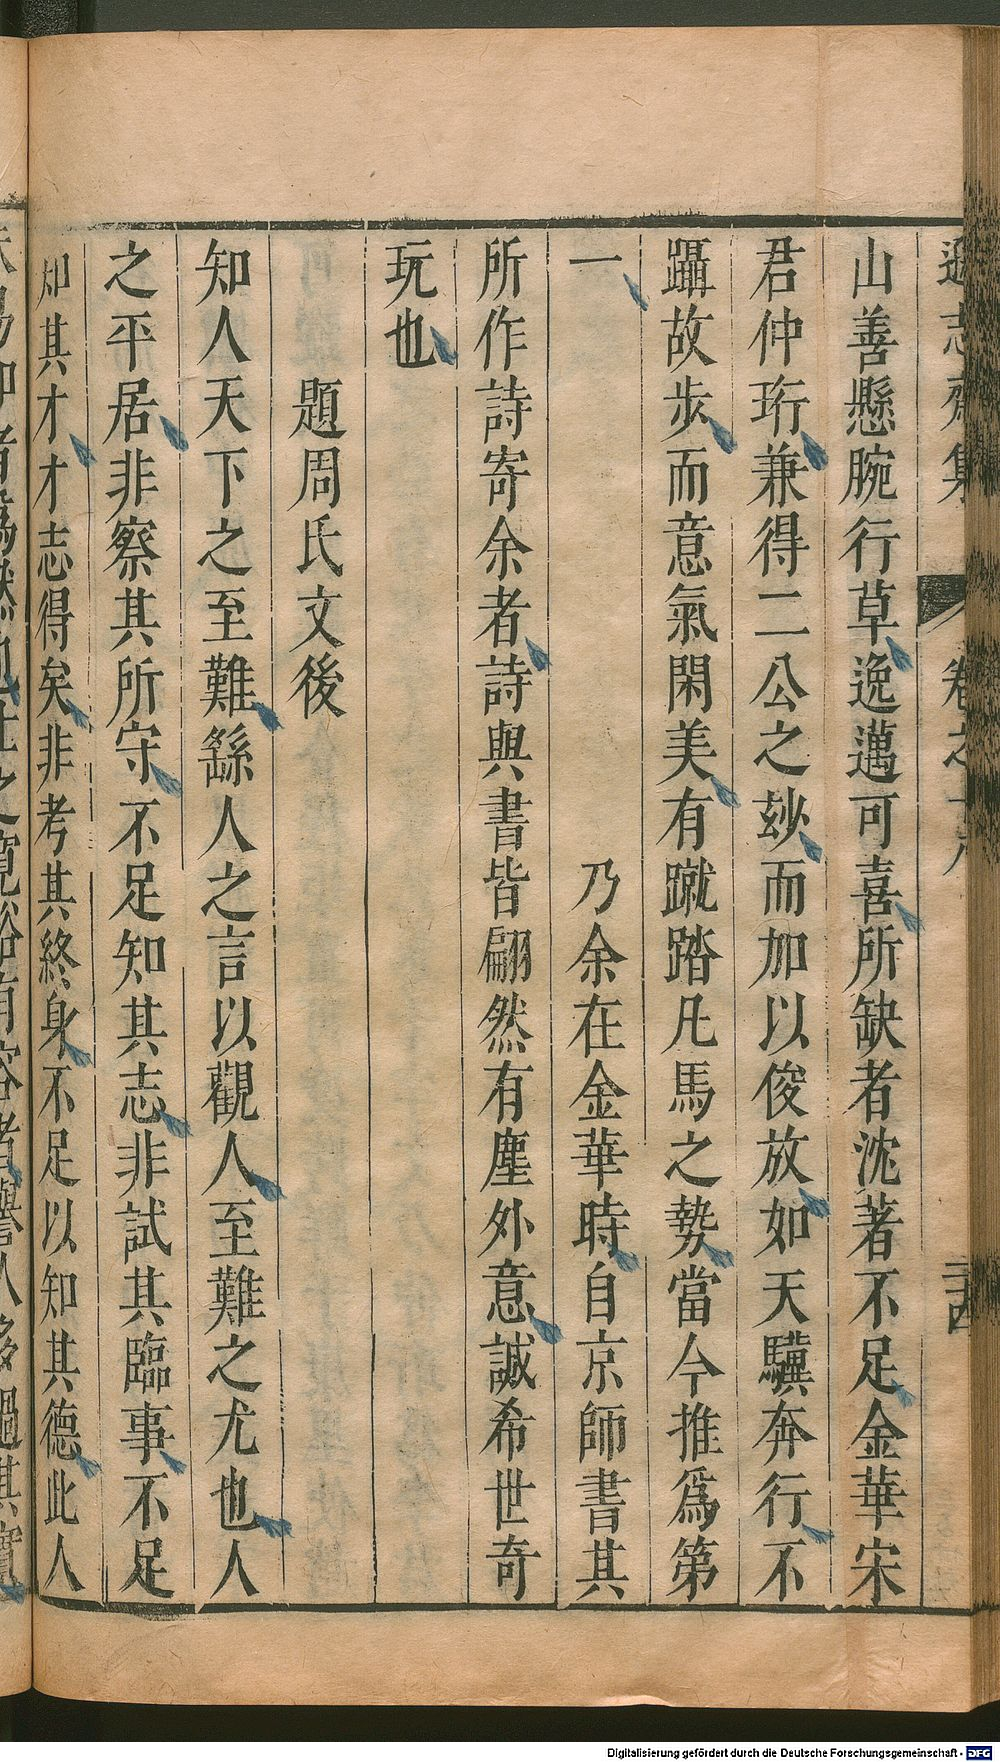 遜志齋集 卷之十八 三十四
山善懸腕行草逸邁可喜所缺者沈著不足金華宋
君仲珩兼得二公之玅而加以俊放如天驥奔行不
躡故步而意氣閑美有蹴踏凡馬之勢當今推爲第
一 乃余在金華時自京師書其
所作詩寄余者詩與書皆翩然有塵外意誠希世奇
玩也
題周氏文後
知人天下之至難繇人之言以觀人至難之尤也人
之平居非察其所守不足知其志非試其臨事不足
知其才才志得矣非考其終身不足以知其德此人
Digitalisierung gefördert durch die Deutsche Forschungsgemeinschaft - DFG